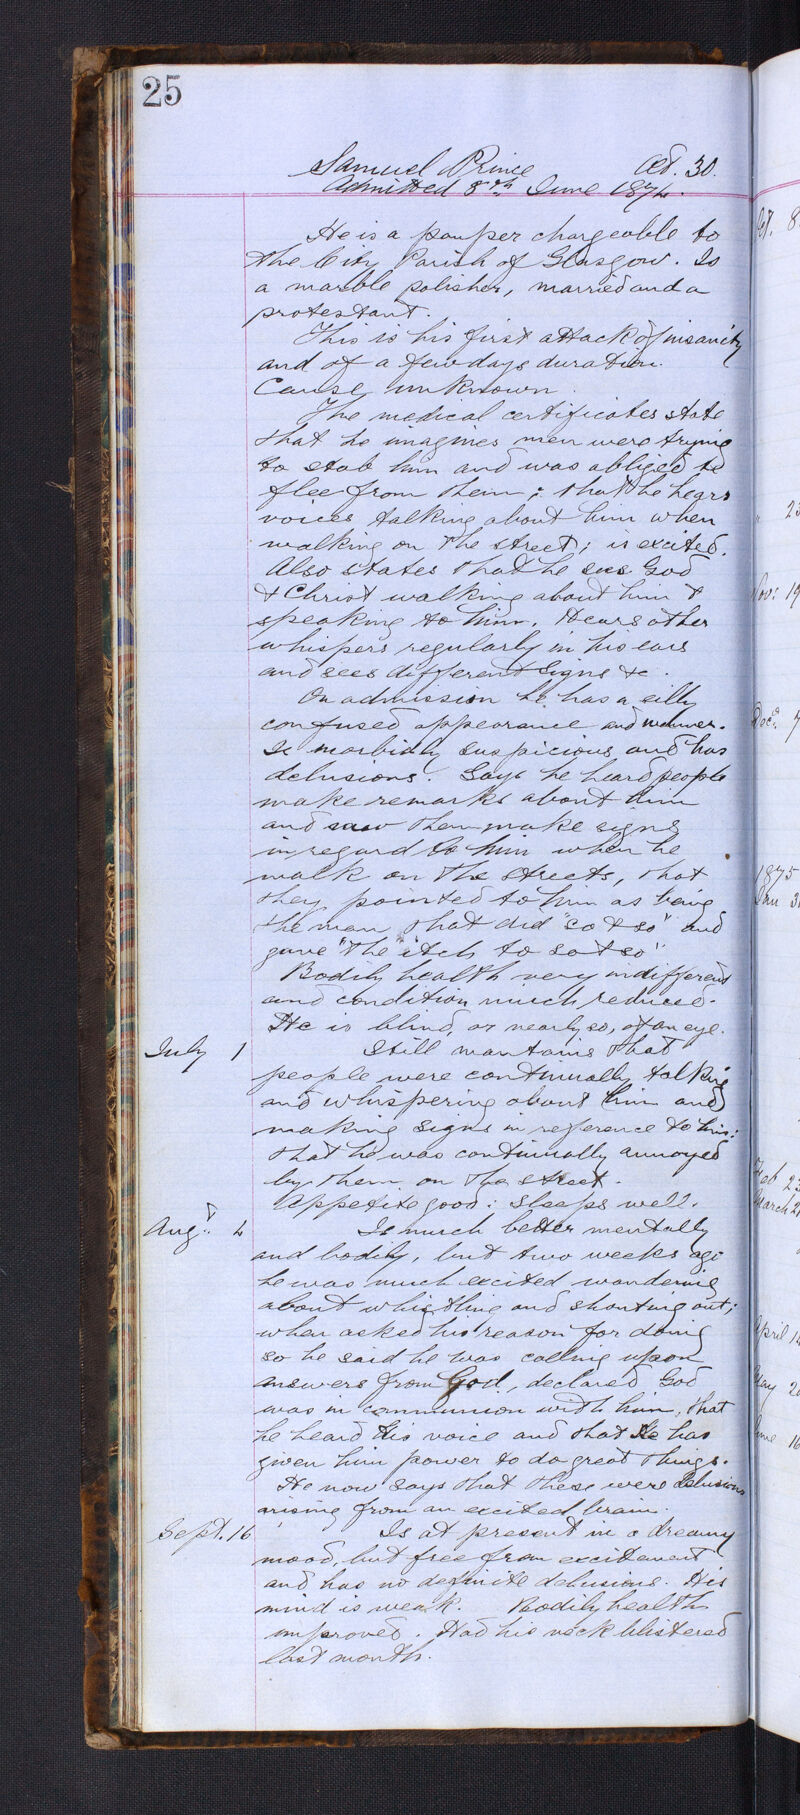 25
Samuel Prince Aet. 30.
Admitted 8th June 1874.
He is a pauper chargeable to
the City Parish of Glasgow. Is
a marble polisher, married and a
protestant.
This is his first attack of insanity
and of a few days duration.
Cause unknown.
The medical certificates state
that he imagines men were trying
to stab him and was obliged to
flee from them; that he hears
voices talking about him when
walking on the street; is excited.
Also states that he sees God
& Christ walking about him &
speaking to him. Hears other
whispers regularly in his ears
and sees different signs &c.
On admission he has a silly
confused appearance and manner.
Is morbidly suspicious and has
delusions. Says he heard people
make remarks about him
and saw them make signs
in regard to him when he
walk on the streets, that
they pointed to him as being
the man that did "so & so" and
gave "the itch to so & so"
Bodily health very indifferent
and condition much reduced.
He is blind, or nearly so, of an eye.
July 1 Still maintains that
people were continually talking
and whispering about him and
making signs in reference to him:
that he was continually annoyed
by them on the street.
Appetite good: sleeps well.
Augt. 4 Is much better mentally
and bodily, but two weeks ago
he was much excited wandering
about whistling and shouting out;
when asked his reason for doing
so he said he was calling upon
answers from God, declared God
was in communion with him, that
he heard His voice and that He has
given him power to do great things.
He now says that these were delusions
arising from an excited brain.
Sept. 16 Is at present in a dreamy
mood, but free from excitement
and has no definite delusions. His
mind is weak. Bodily health
improved. Had his neck blistered
last month.
1875
Feb 23
March 2
April 14
May 20
June 16